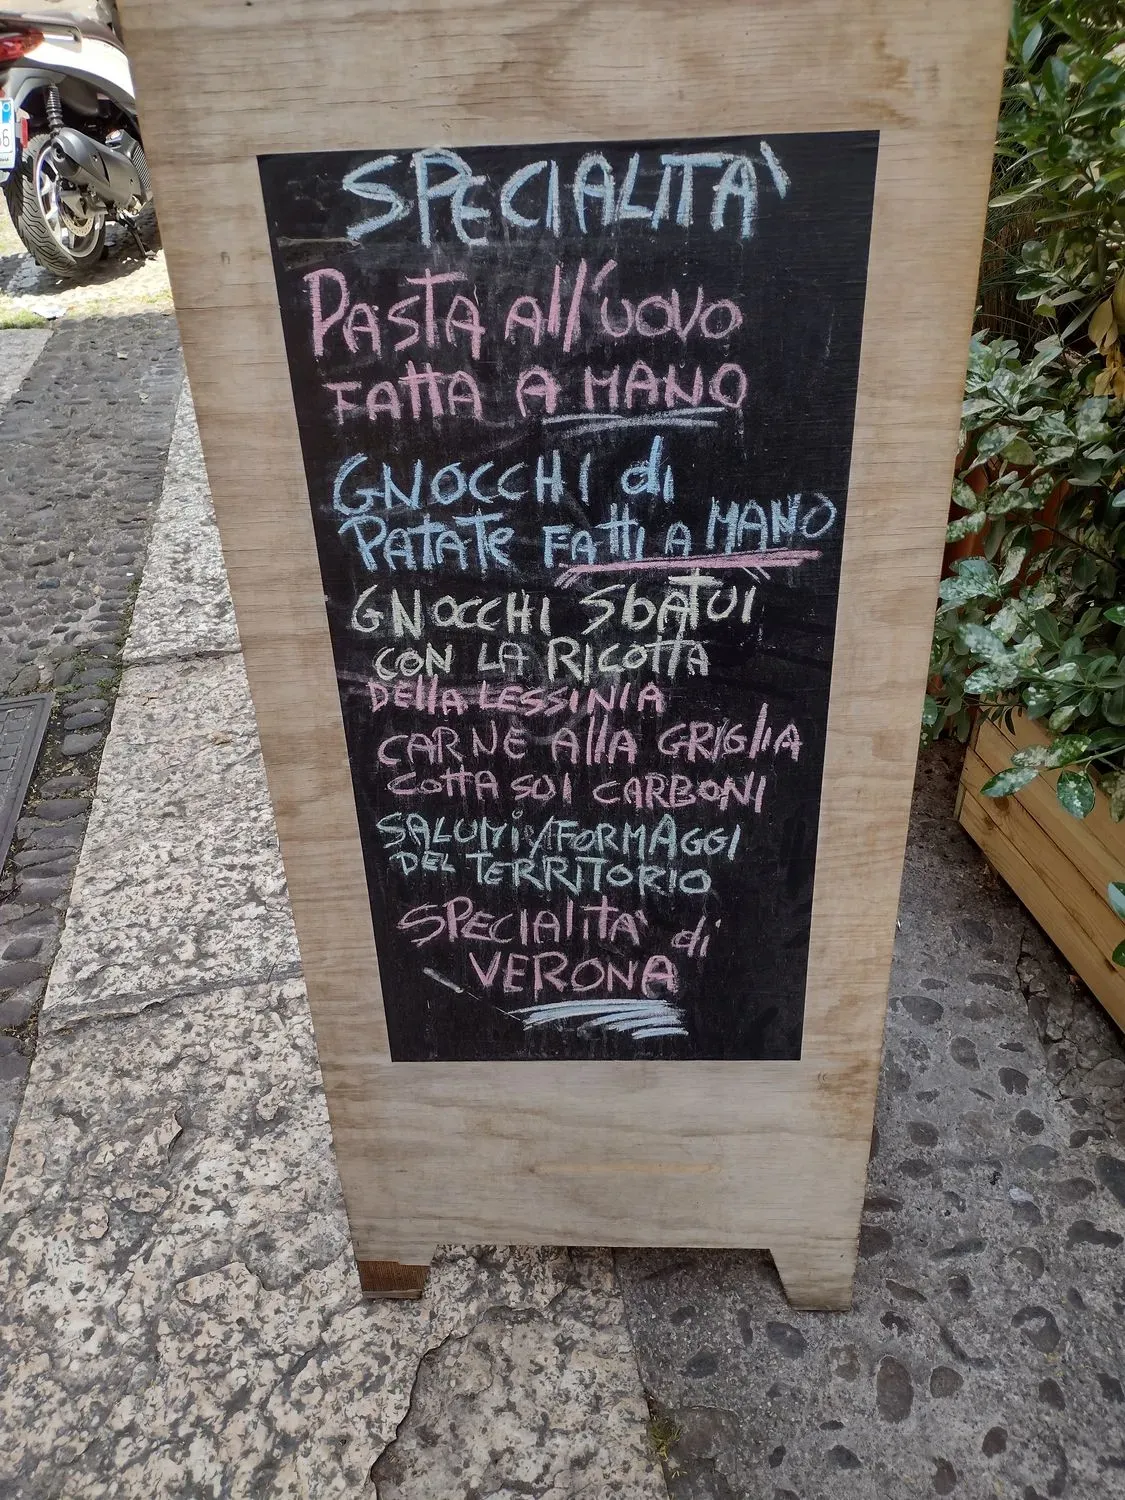 SPECIALITA'
PASTA All'UOVO
FATTA A MANO
GNOCCHI di
PATATE FATTI A MANO
GNOCCHI SbATUI
CON LA RICOTTA
DEllA LESSINIA
CARNE AllA GRIGlIA
COTTA SUI CARBONI
SALUMI/FORMAGGI
DEL TERRITORIO
SPECIAlITA' di
VERONA